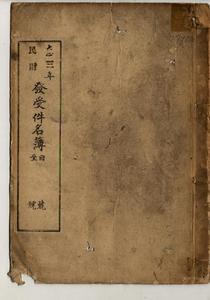 大正三年
民財
發受件名簿
自
至
號
號